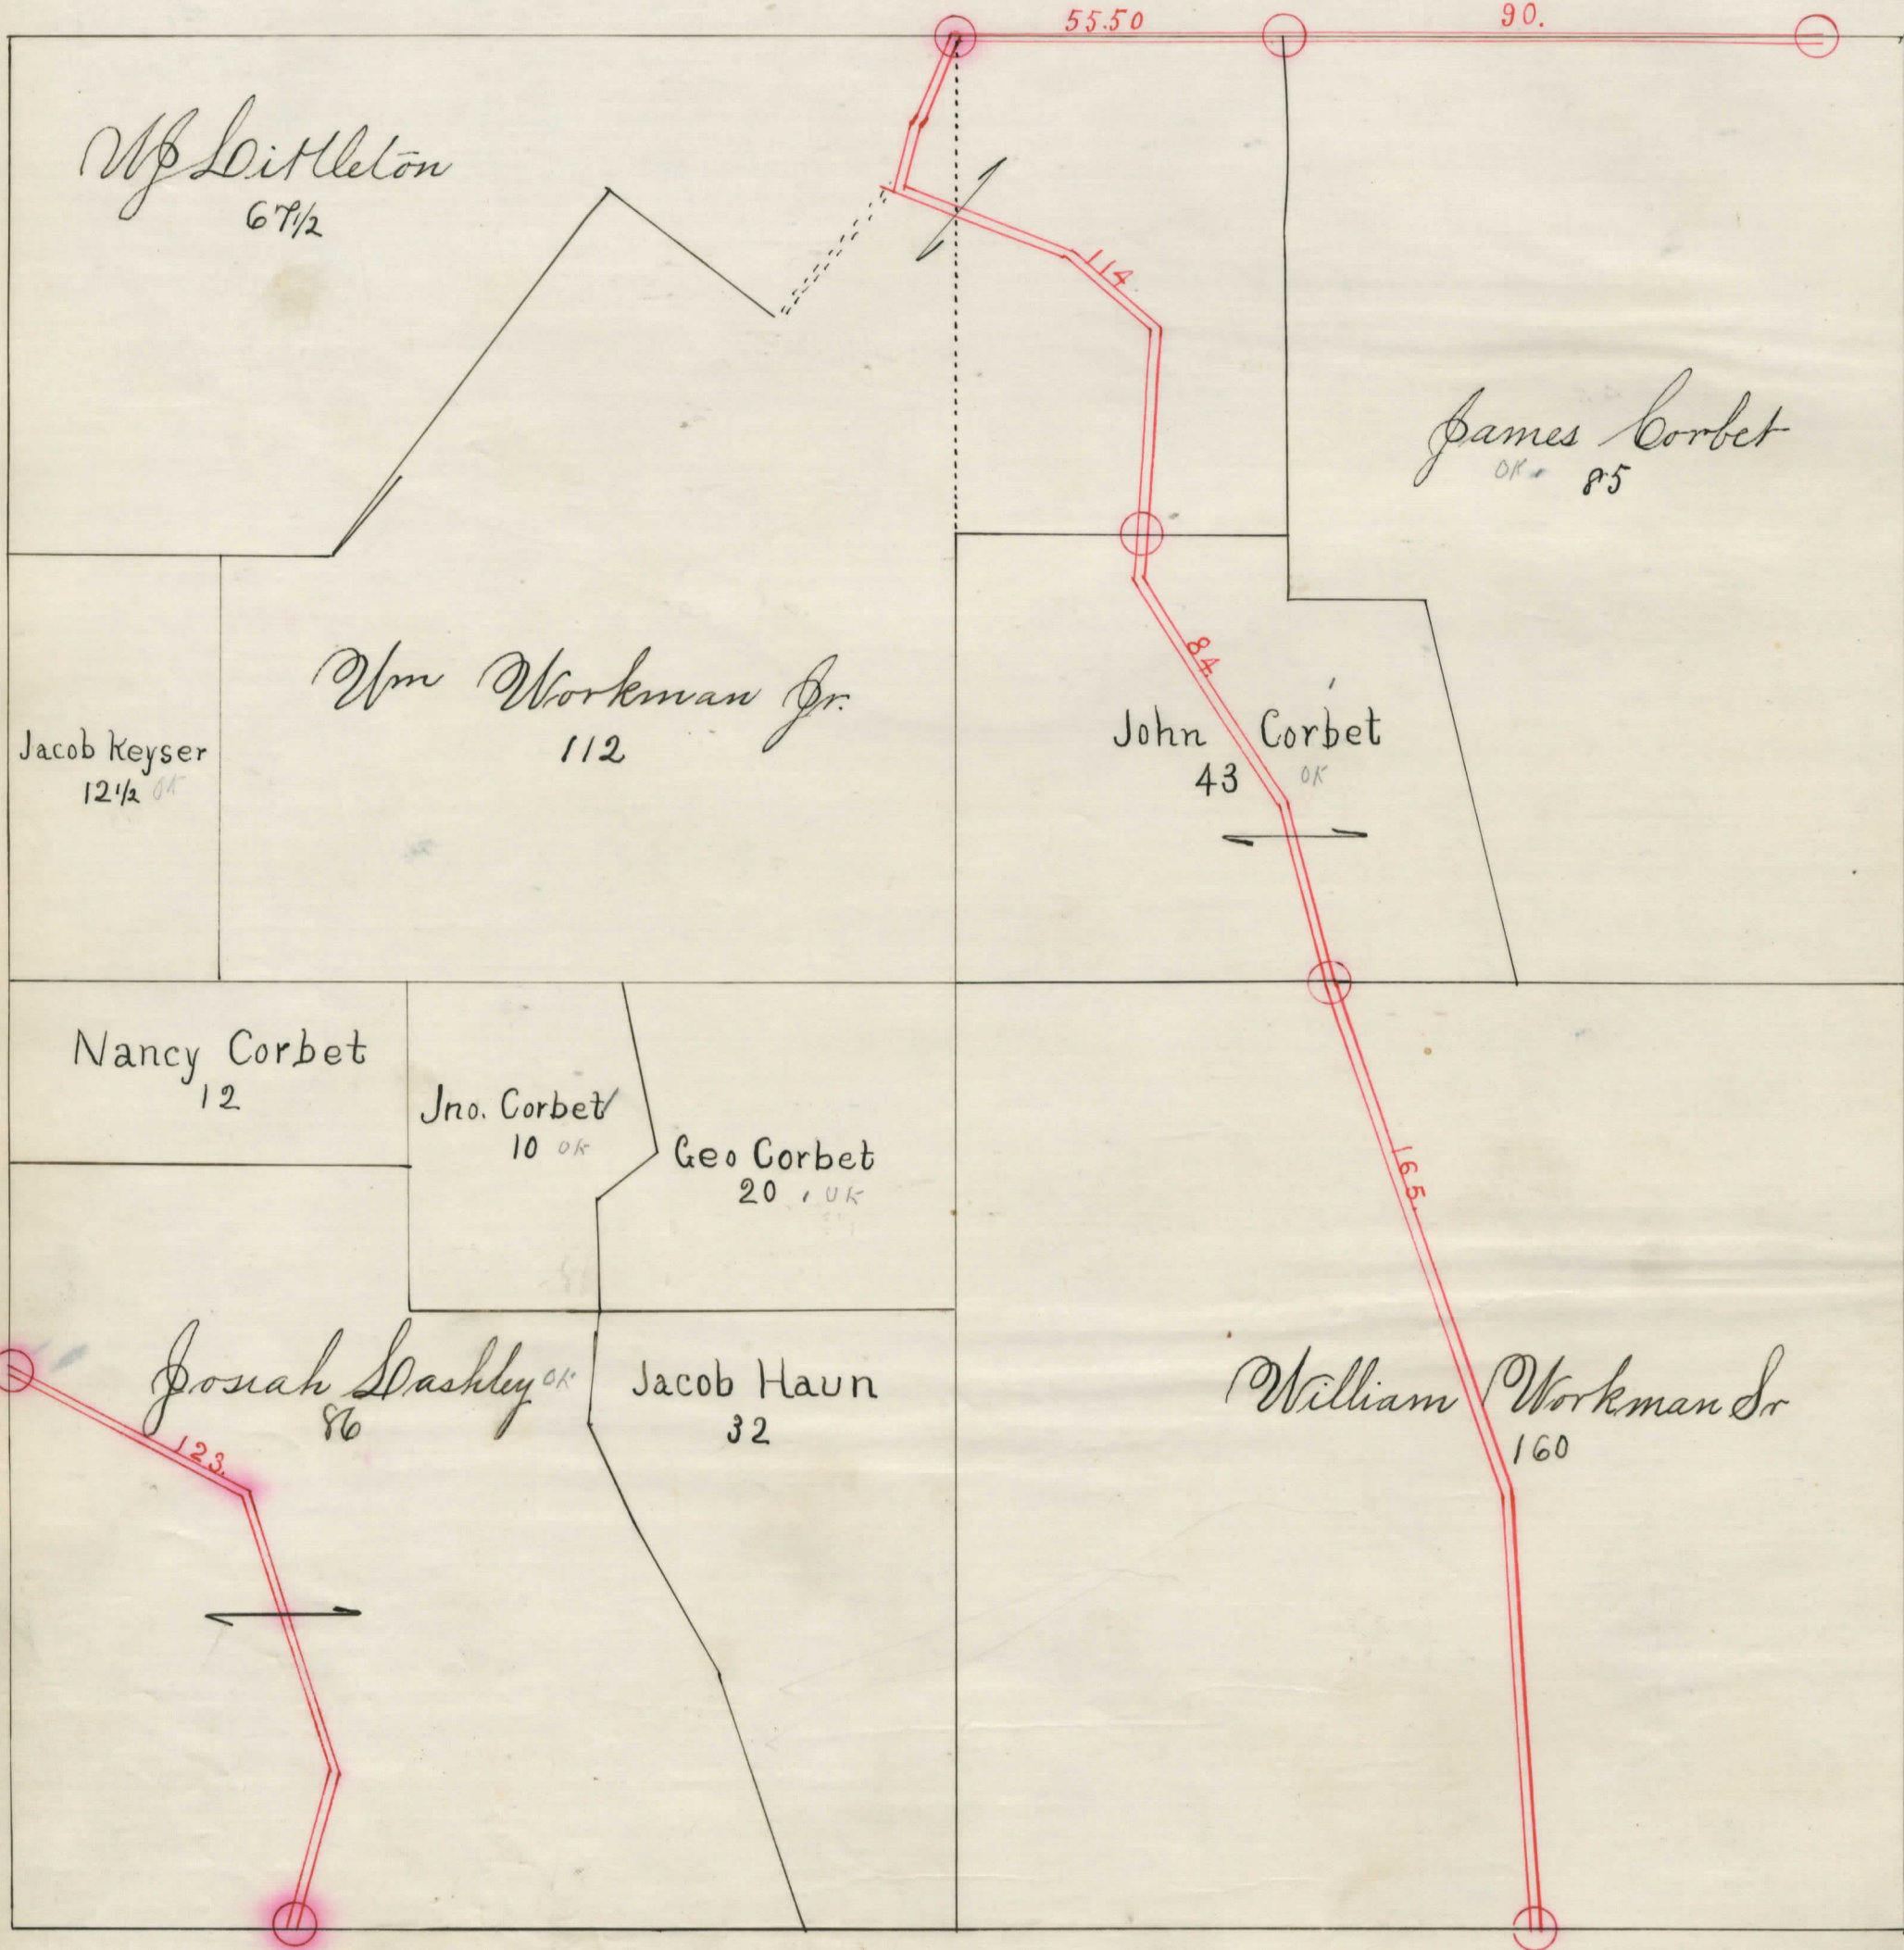 55.50
90.
WJ Littleton
67 1/2
114
James Corbet
OK 85
Wm Workman Jr.
112
84
John Corbet
43 OK
Jacob Keyser
12 1/2 OK
Nancy Corbet
12
Jno. Corbet
10 OK
Geo Corbet
20 OK
165.
Josiah Lashley OK
86
Jacob Haun
32
William Workman Sr
160
123.